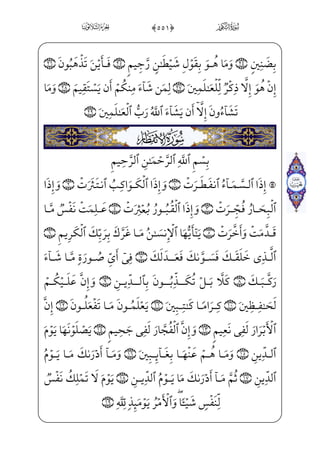 بِضَنِينٍ وَمَا هُوَ بِقَوْلِ شَيْطَٰنٍ رَّجِيمٍ فَأَيْنَ تَذْهَبُونَ
إِنْ هُوَ إِلَّا ذِكْرٌ لِّلْعَٰلَمِينَ لِمَن شَآءَ مِنكُمْ أَن يَسْتَقِيمَ وَمَا
تَشَآءُونَ إِلَّآ أَن يَشَآءَ ٱللَّهُ رَبُّ ٱلْعَٰلَمِينَ
سُورَةُ الانفِطَارِ
بِسْمِ ٱللَّهِ ٱلرَّحْمَٰنِ ٱلرَّحِيمِ
إِذَا ٱلسَّمَآءُ ٱنفَطَرَتْ وَإِذَا ٱلْكَوَاكِبُ ٱنتَثَرَتْ وَإِذَا
ٱلْبِحَارُ فُجِّرَتْ وَإِذَا ٱلْقُبُورُ بُعْثِرَتْ عَلِمَتْ نَفْسٌ مَّا
قَدَّمَتْ وَأَخَّرَتْ يَٰٓأَيُّهَا ٱلْإِنسَٰنُ مَا غَرَّكَ بِرَبِّكَ ٱلْكَرِيمِ
ٱلَّذِى خَلَقَكَ فَسَوَّىٰكَ فَعَدَلَكَ فِىٓ أَىِّ صُورَةٍ مَّا شَآءَ
رَكَّبَكَ كَلَّا بَلْ تُكَذِّبُونَ بِٱلدِّينِ وَإِنَّ عَلَيْكُمْ
لَحَٰفِظِينَ كِرَامًا كَٰتِبِينَ يَعْلَمُونَ مَا تَفْعَلُونَ إِنَّ
ٱلْأَبْرَارَ لَفِى نَعِيمٍ وَإِنَّ ٱلْفُجَّارَ لَفِى جَحِيمٍ يَصْلَوْنَهَا يَوْمَ
ٱلدِّينِ وَمَا هُمْ عَنْهَا بِغَآئِبِينَ وَمَآ أَدْرَىٰكَ مَا يَوْمُ
ٱلدِّينِ ثُمَّ مَآ أَدْرَىٰكَ مَا يَوْمُ ٱلدِّينِ يَوْمَ لَا تَمْلِكُ نَفْسٌ
لِّنَفْسٍ شَيْـًٔا وَٱلْأَمْرُ يَوْمَئِذٍ لِّلَّهِ